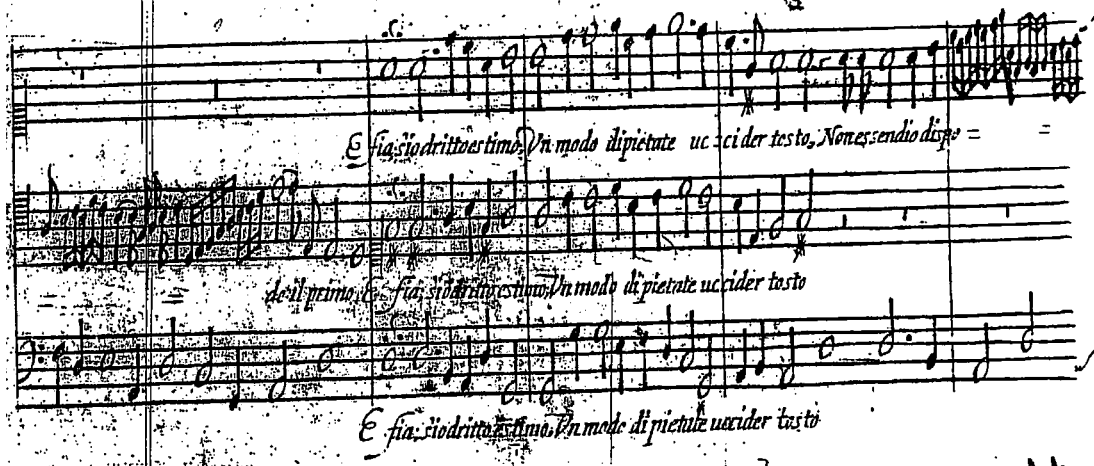 E fia, s'io dritto estimo, Un modo di pietate uccider tosto, Non essendio dispo =
do il primo, E fia, s'io dritto estimo, Un modo di pietate uccider tosto
E fia, s'io dritto estimo, Un modo di pietate uccider tosto